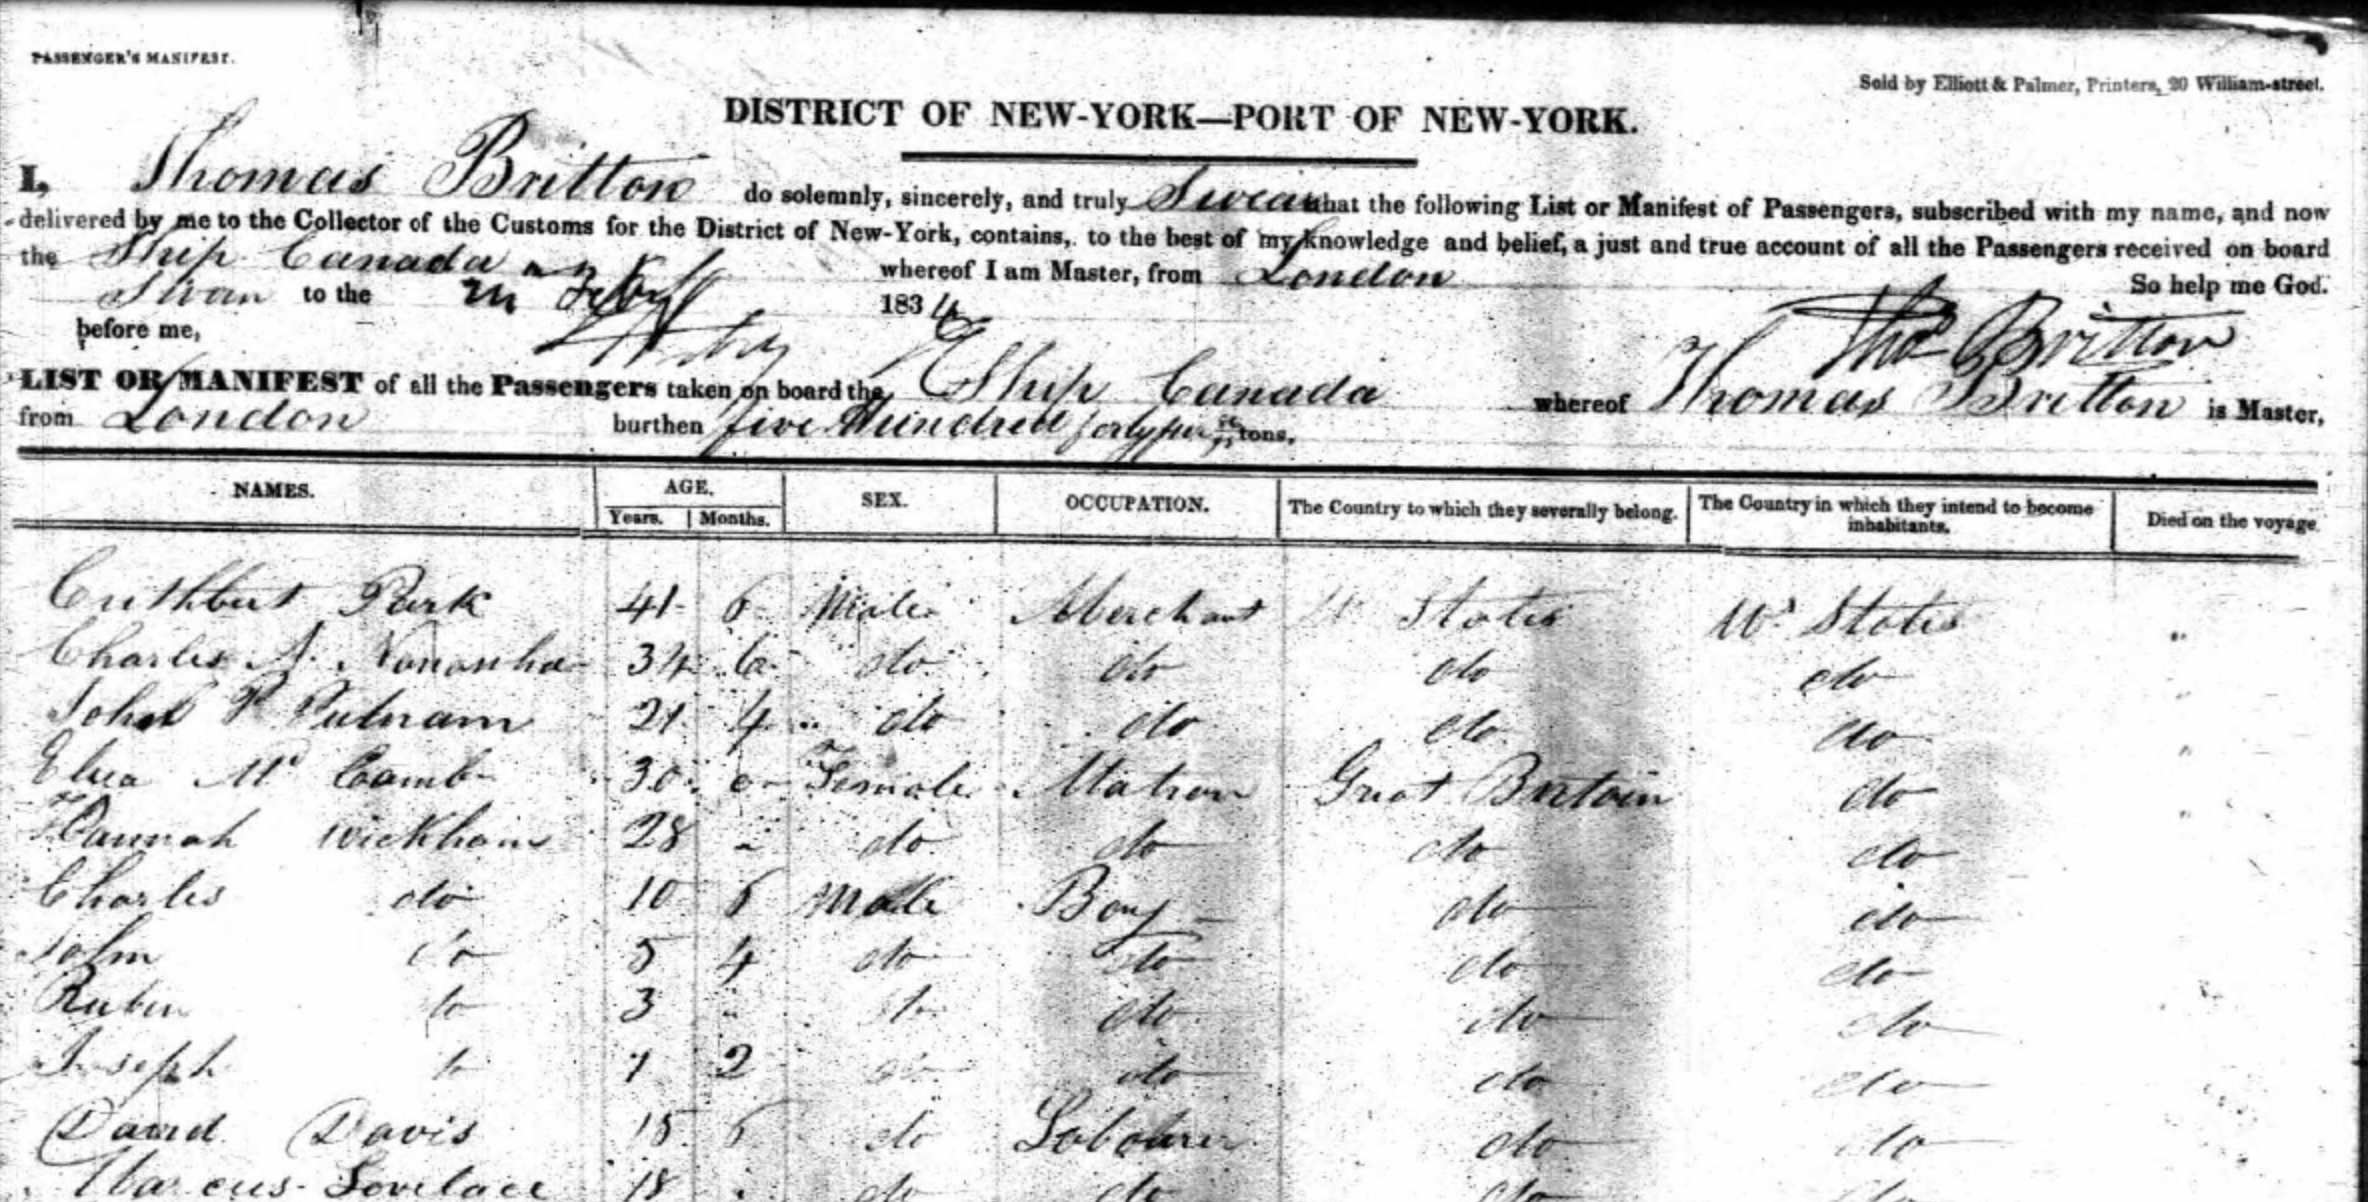 PASSENGER'S MANIFEST.
Sold by Elliott & Palmer, Printers, 20 William-street.
DISTRICT OF NEW-YORK—PORT OF NEW-YORK.
I, Thomas Britton do solemnly, sincerely, and truly Swear that the following List or Manifest of Passengers, subscribed with my name, and now
delivered by me to the Collector of the Customs for the District of New-York, contains, to the best of my knowledge and belief, a just and true account of all the Passengers received on board
the Ship Canada whereof I am Master, from London So help me God.
to the 1834
before me, Thos Britton
LIST OR MANIFEST of all the Passengers taken on board the Ship Canada whereof Thomas Britton is Master,
from London burthen five Hundred tons.
NAMES. AGE. Years. Months. SEX. OCCUPATION. The Country to which they severally belong. The Country in which they intend to become inhabitants. Died on the voyage.
Cuthbert Park 41 6 Male Merchant U States Ud States "
Charles 34 6 do do do do "
John P Putnam 21 4 do do do do "
Mc Comb 30 Female Matron Great Britain do "
Hannah Wickham 28 - do do do do
Charles do 10 6 Male Boy do do
John do 5 4 do do do do
Rubin do 3 do do do do
Joseph do 1 2 do do do do
David Davis 18 6 do Labourer do do
Marcus Lovelace 18 do do do do